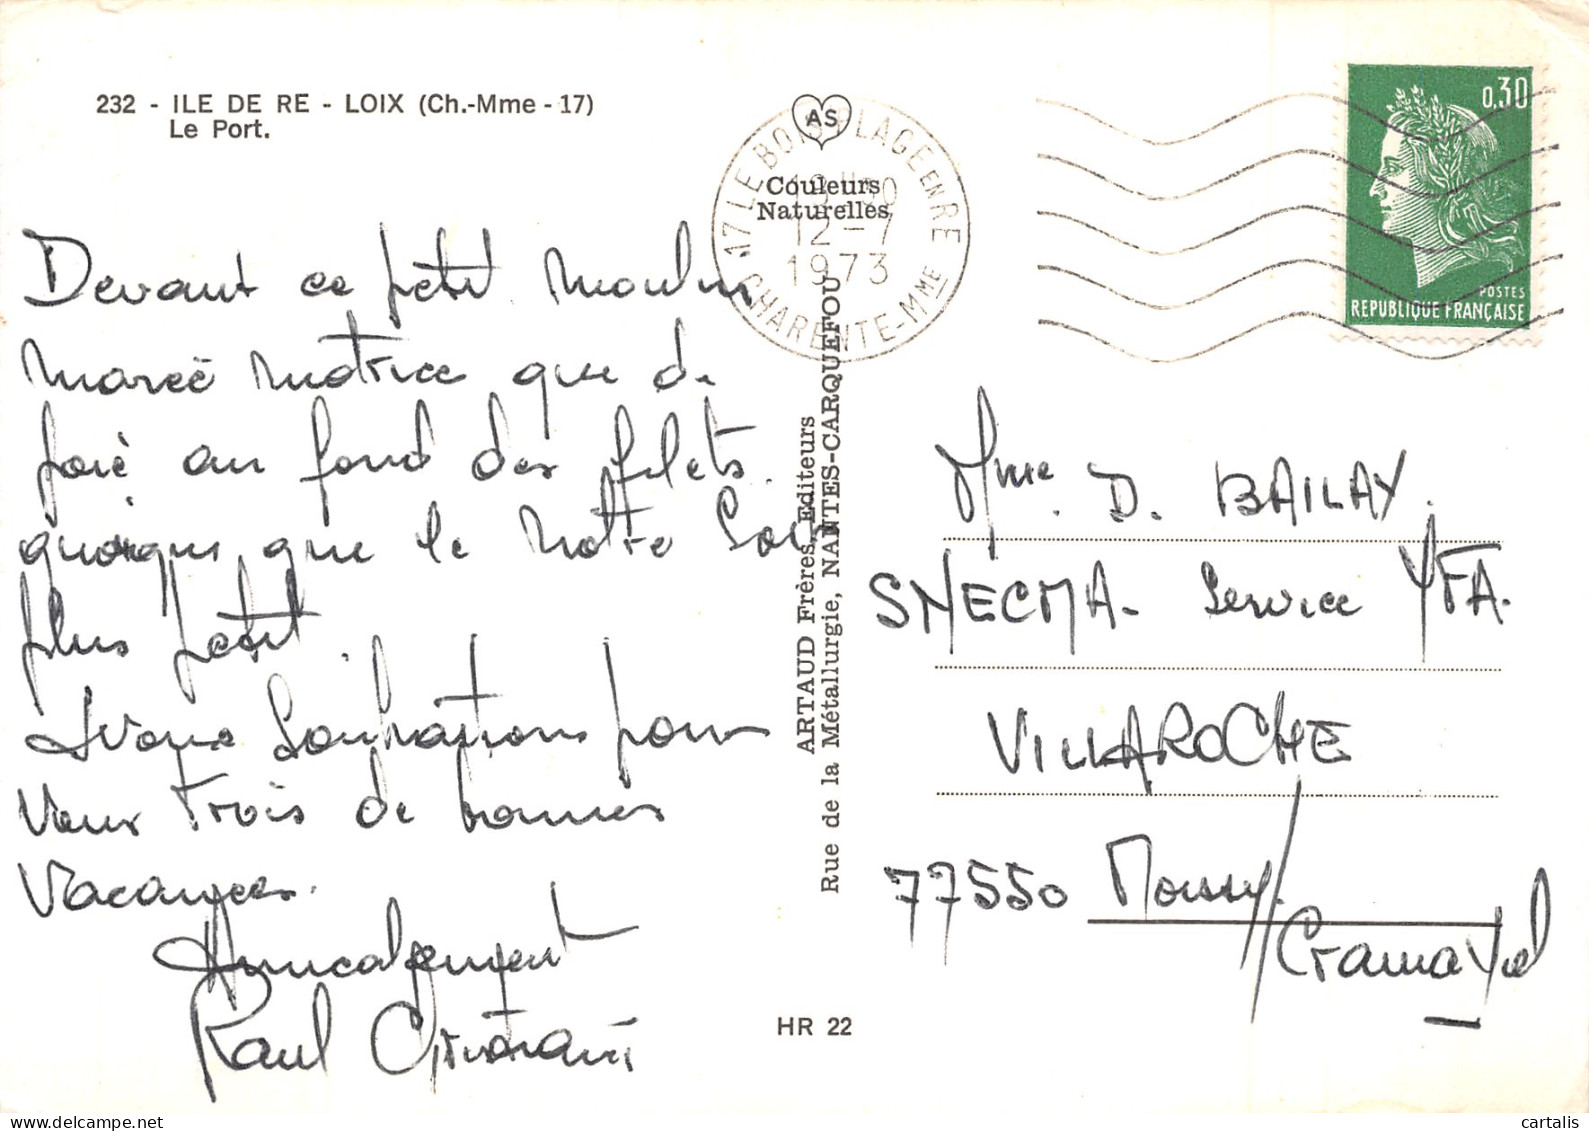 232 - ILE DE RE - LOIX (Ch.-Mme - 17)
Le Port.
AS
Couleurs
Naturelles
17 LE BOIS PLAGE EN RE
12-7
1973
CHARENTE-MME
0,30
POSTES
REPUBLIQUE FRANÇAISE
Devant ce petit moulin
marée motrice que de
joie au fond des filets.
quoique que le notre soit
plus petit.
souhaitons pour
vous trois de bonnes
vacances.
Amicalement
Raul
ARTAUD Frères, Editeurs
Rue de la Métallurgie, NANTES-CARQUEFOU
HR 22
Mme. D. BAILAY.
SNECMA - Service YFA.
VILLAROCHE
77550 Moissy/
Cramayel
cartalis